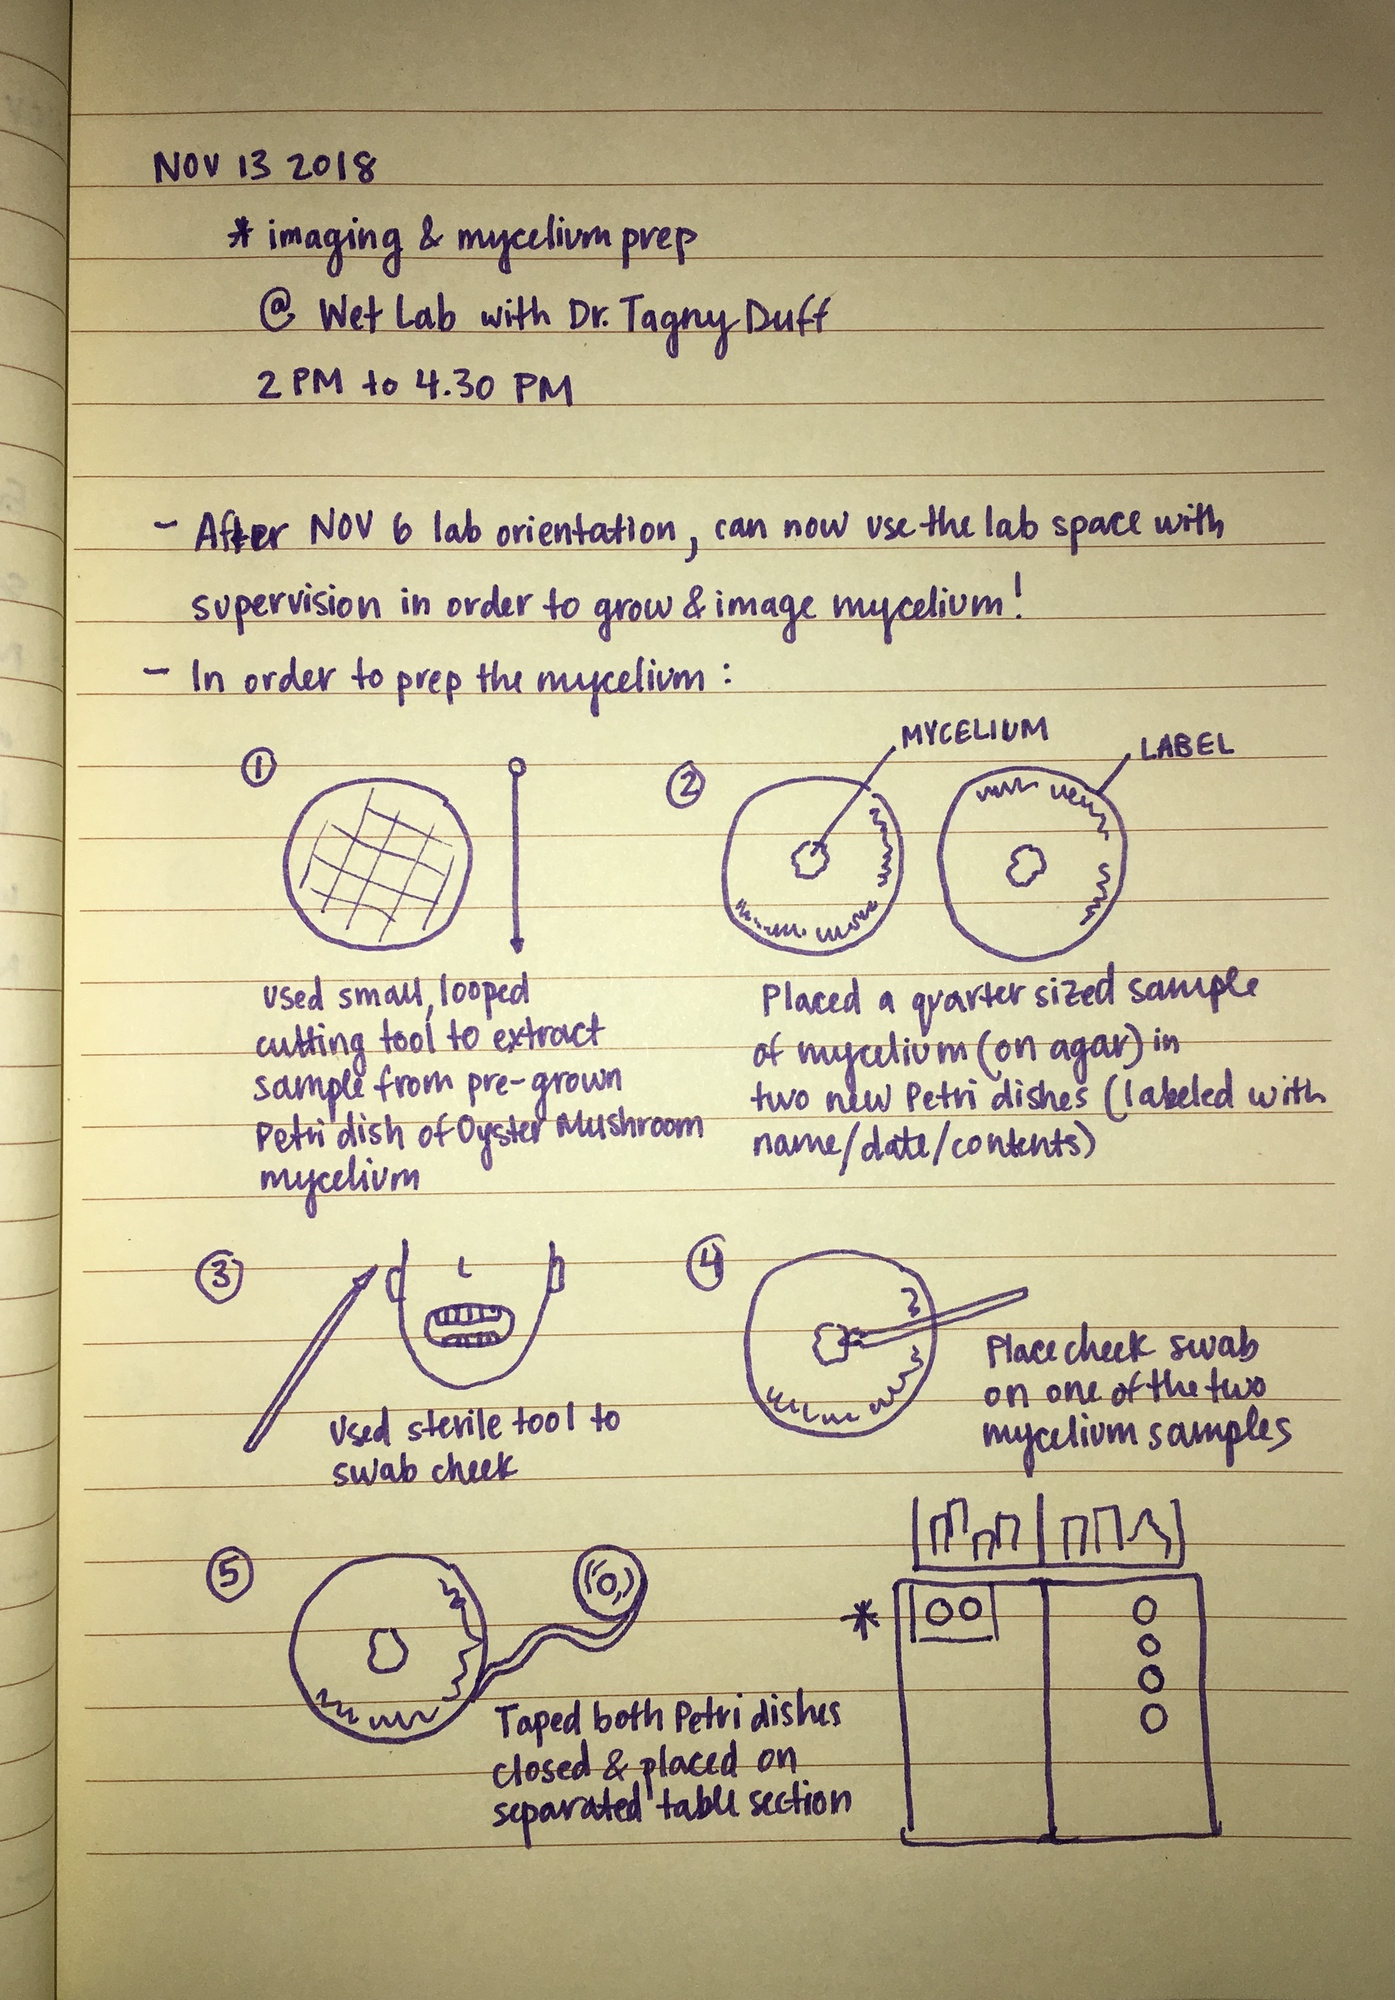 NOV 13 2018
* imaging & mycelium prep
@ Wet Lab with Dr. Tagny Duff
2 PM to 4.30 PM
- After NOV 6 lab orientation, can now use the lab space with
supervision in order to grow & image mycelium!
- In order to prep the mycelium:
①
used small, looped
cutting tool to extract
sample from pre-grown
Petri dish of Oyster Mushroom
mycelium
②
MYCELIUM
LABEL
Placed a quarter sized sample
of mycelium (on agar) in
two new Petri dishes (labeled with
name/date/contents)
③
Used sterile tool to
swab cheek
④
Place cheek swab
on one of the two
mycelium samples
⑤
Taped both Petri dishes
closed & placed on
separated table section
*